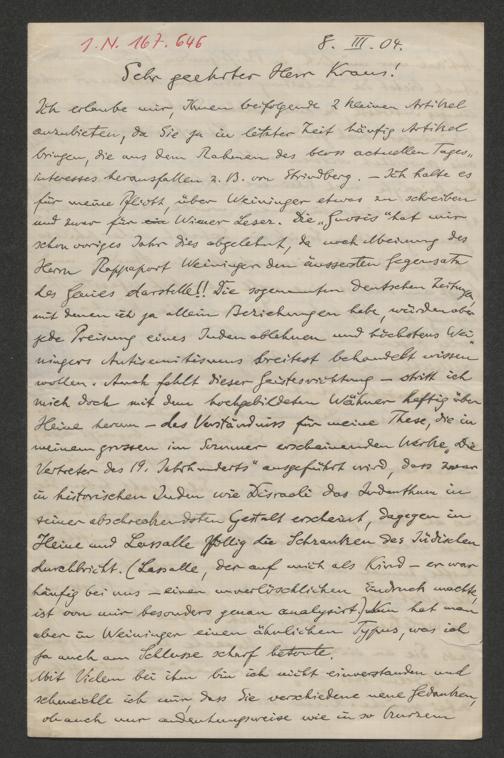 I.N. 167.646
8. III. 04.
Sehr geehrter Herr Kraus!
Ich erlaube mir, Ihnen beifolgende 2 kleinen Artikel
anzubieten, da Sie ja in letzter Zeit häufig Artikel
bringen, die aus dem Rahmen des bloss actuellen Tages„
interesses herausfallen z. B. von Strindberg. – Ich halte es
für meine Pflicht, über Weininger etwas zu schreiben
und zwar für die Wiener Leser. Die „Gnosis“ hat mir
schon voriges Jahr dies abgelehnt, da nach Meinung des
Herrn Rappaport Weininger den äussersten Gegensatz
des Genies darstelle!! Die sogenannten deutschen Zeitungen,
mit denen ich ja allein Beziehungen habe, würden aber
jede Preisung eines Juden ablehnen und höchstens Wei„
ningers Antisemitismus breitest behandelt wissen
wollen. Auch fehlt dieser Geistesrichtung – stritt ich
mich doch mit dem hochgebildeten Wähner heftig über
Heine herum – das Verständniss für meine These, die in
meinem grossen im Sommer erscheinenden Werke „Die
Vertreter des 19. Jahrhunderts“ ausgeführt wird, dass zwar
in historischen Juden wie Disraeli das Judenthum in
seiner abschreckendsten Gestalt erscheint, dagegen in
Heine und Lassalle völlig die Schranken des Jüdischen
durchbricht. (Lassalle, der auf mich als Kind – er war
häufig bei uns – einen unverlöschlichen Eindruck machte,
ist von mir besonders genau analysirt.) Nun hat man
aber in Weininger einen ähnlichen Typus, was ich
ja auch am Schlusse scharf betonte.
Mit Vielem bei ihm bin ich nicht einverstanden und
schmeichle ich mir, dass Sie verschiedene neue Gedanken,
ob auch nur andeutungsweise wie in so kurzem